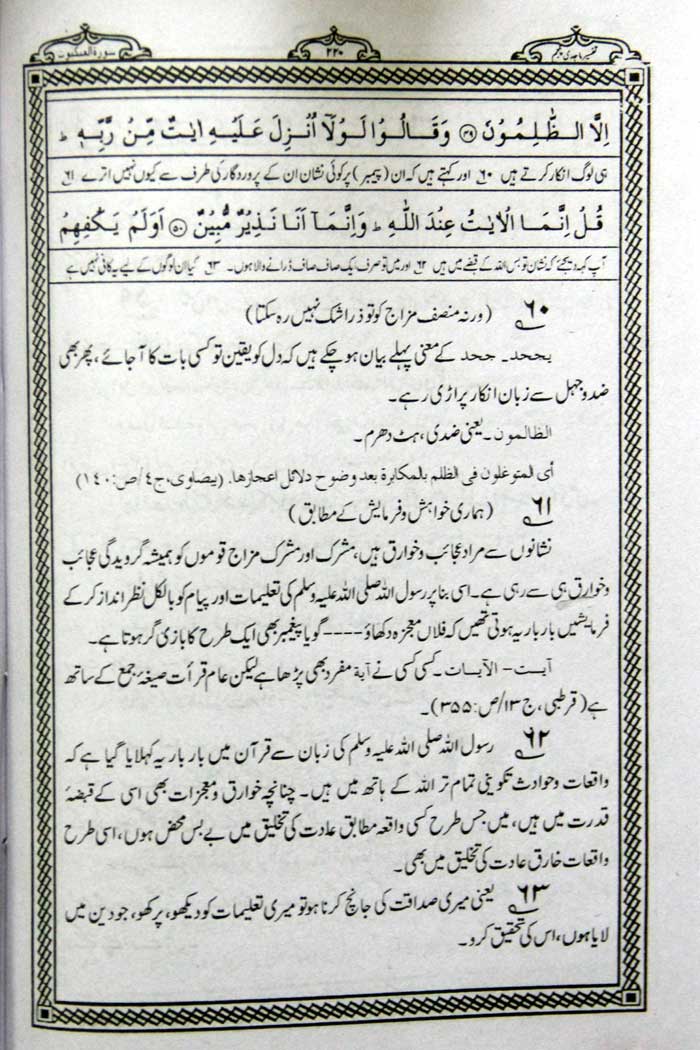 تفسیر ماجدی پنجم
۲۲۰
سورۃ العنکبوت
اِلَّا الظّٰلِمُوْنَ ۴۹ وَقَالُوْا لَوْلَاۤ اُنْزِلَ عَلَیْهِ اٰیٰتٌ مِّنْ رَّبِّهٖ ؕ
ہی لوگ انکار کرتے ہیں ۶۰ اور کہتے ہیں کہ ان (پیمبر) پر کوئی نشان ان کے پروردگار کی طرف سے کیوں نہیں اترے ۶۱
قُلْ اِنَّمَا الْاٰیٰتُ عِنْدَ اللّٰهِ ؕ وَاِنَّمَاۤ اَنَا نَذِیْرٌ مُّبِیْنٌ ۵۰ اَوَلَمْ یَكْفِهِمْ
آپ کہہ دیجئے کہ نشان تو بس اللہ کے قبضے میں ہیں ۶۲ اور میں تو صرف یک صاف صاف ڈرانے والا ہوں۔ ۶۳ کیا ان لوگوں کے لیے یہ کافی نہیں ہے
۶۰ (ورنہ منصف مزاج کو تو ذرا شک نہیں رہ سکتا)
یجحد۔ جحد کے معنی پہلے بیان ہو چکے ہیں کہ دل کو یقین تو کسی بات کا آ جائے، پھر بھی
ضد و جہل سے زبان انکار پر اڑی رہے۔
الظالمون۔ یعنی ضدی، ہٹ دھرم۔
أی المتوغلون فی الظلم بالمکابرة بعد وضوح دلائل اعجازھا۔ (بیضاوی، ج٤/ص:١٤٠)
۶۱ (ہماری خواہش و فرمایش کے مطابق)
نشانوں سے مراد عجائب و خوارق ہیں، مشرک اور مشرک مزاج قوموں کو ہمیشہ گرویدگی عجائب
و خوارق ہی سے رہی ہے۔ اسی بنا پر رسول اللہ صلی اللہ علیہ وسلم کی تعلیمات اور پیام کو بالکل نظر انداز کر کے
فرمایشیں بار بار یہ ہوتی تھیں کہ فلاں معجزہ دکھاؤ---- گویا پیغمبر بھی ایک طرح کا بازی گر ہوتا ہے۔
آیت - الآیات۔ کسی کسی نے آیة مفرد بھی پڑھا ہے لیکن عام قرأت صیغۂ جمع کے ساتھ
ہے (قرطبی، ج ۱۳/ص: ۳۵۵)۔
۶۲ رسول اللہ صلی اللہ علیہ وسلم کی زبان سے قرآن میں بار بار یہ کہلایا گیا ہے کہ
واقعات و حوادث تکوینی تمام تر اللہ کے ہاتھ میں ہیں۔ چنانچہ خوارق و معجزات بھی اسی کے قبضۂ
قدرت میں ہیں، میں جس طرح کسی واقعہ مطابق عادت کی تخلیق میں بے بس محض ہوں، اسی طرح
واقعات خارق عادت کی تخلیق میں بھی۔
۶۳ یعنی میری صداقت کی جانچ کرنا ہو تو میری تعلیمات کو دیکھو، پرکھو، جو دین میں
لایا ہوں، اس کی تحقیق کرو۔